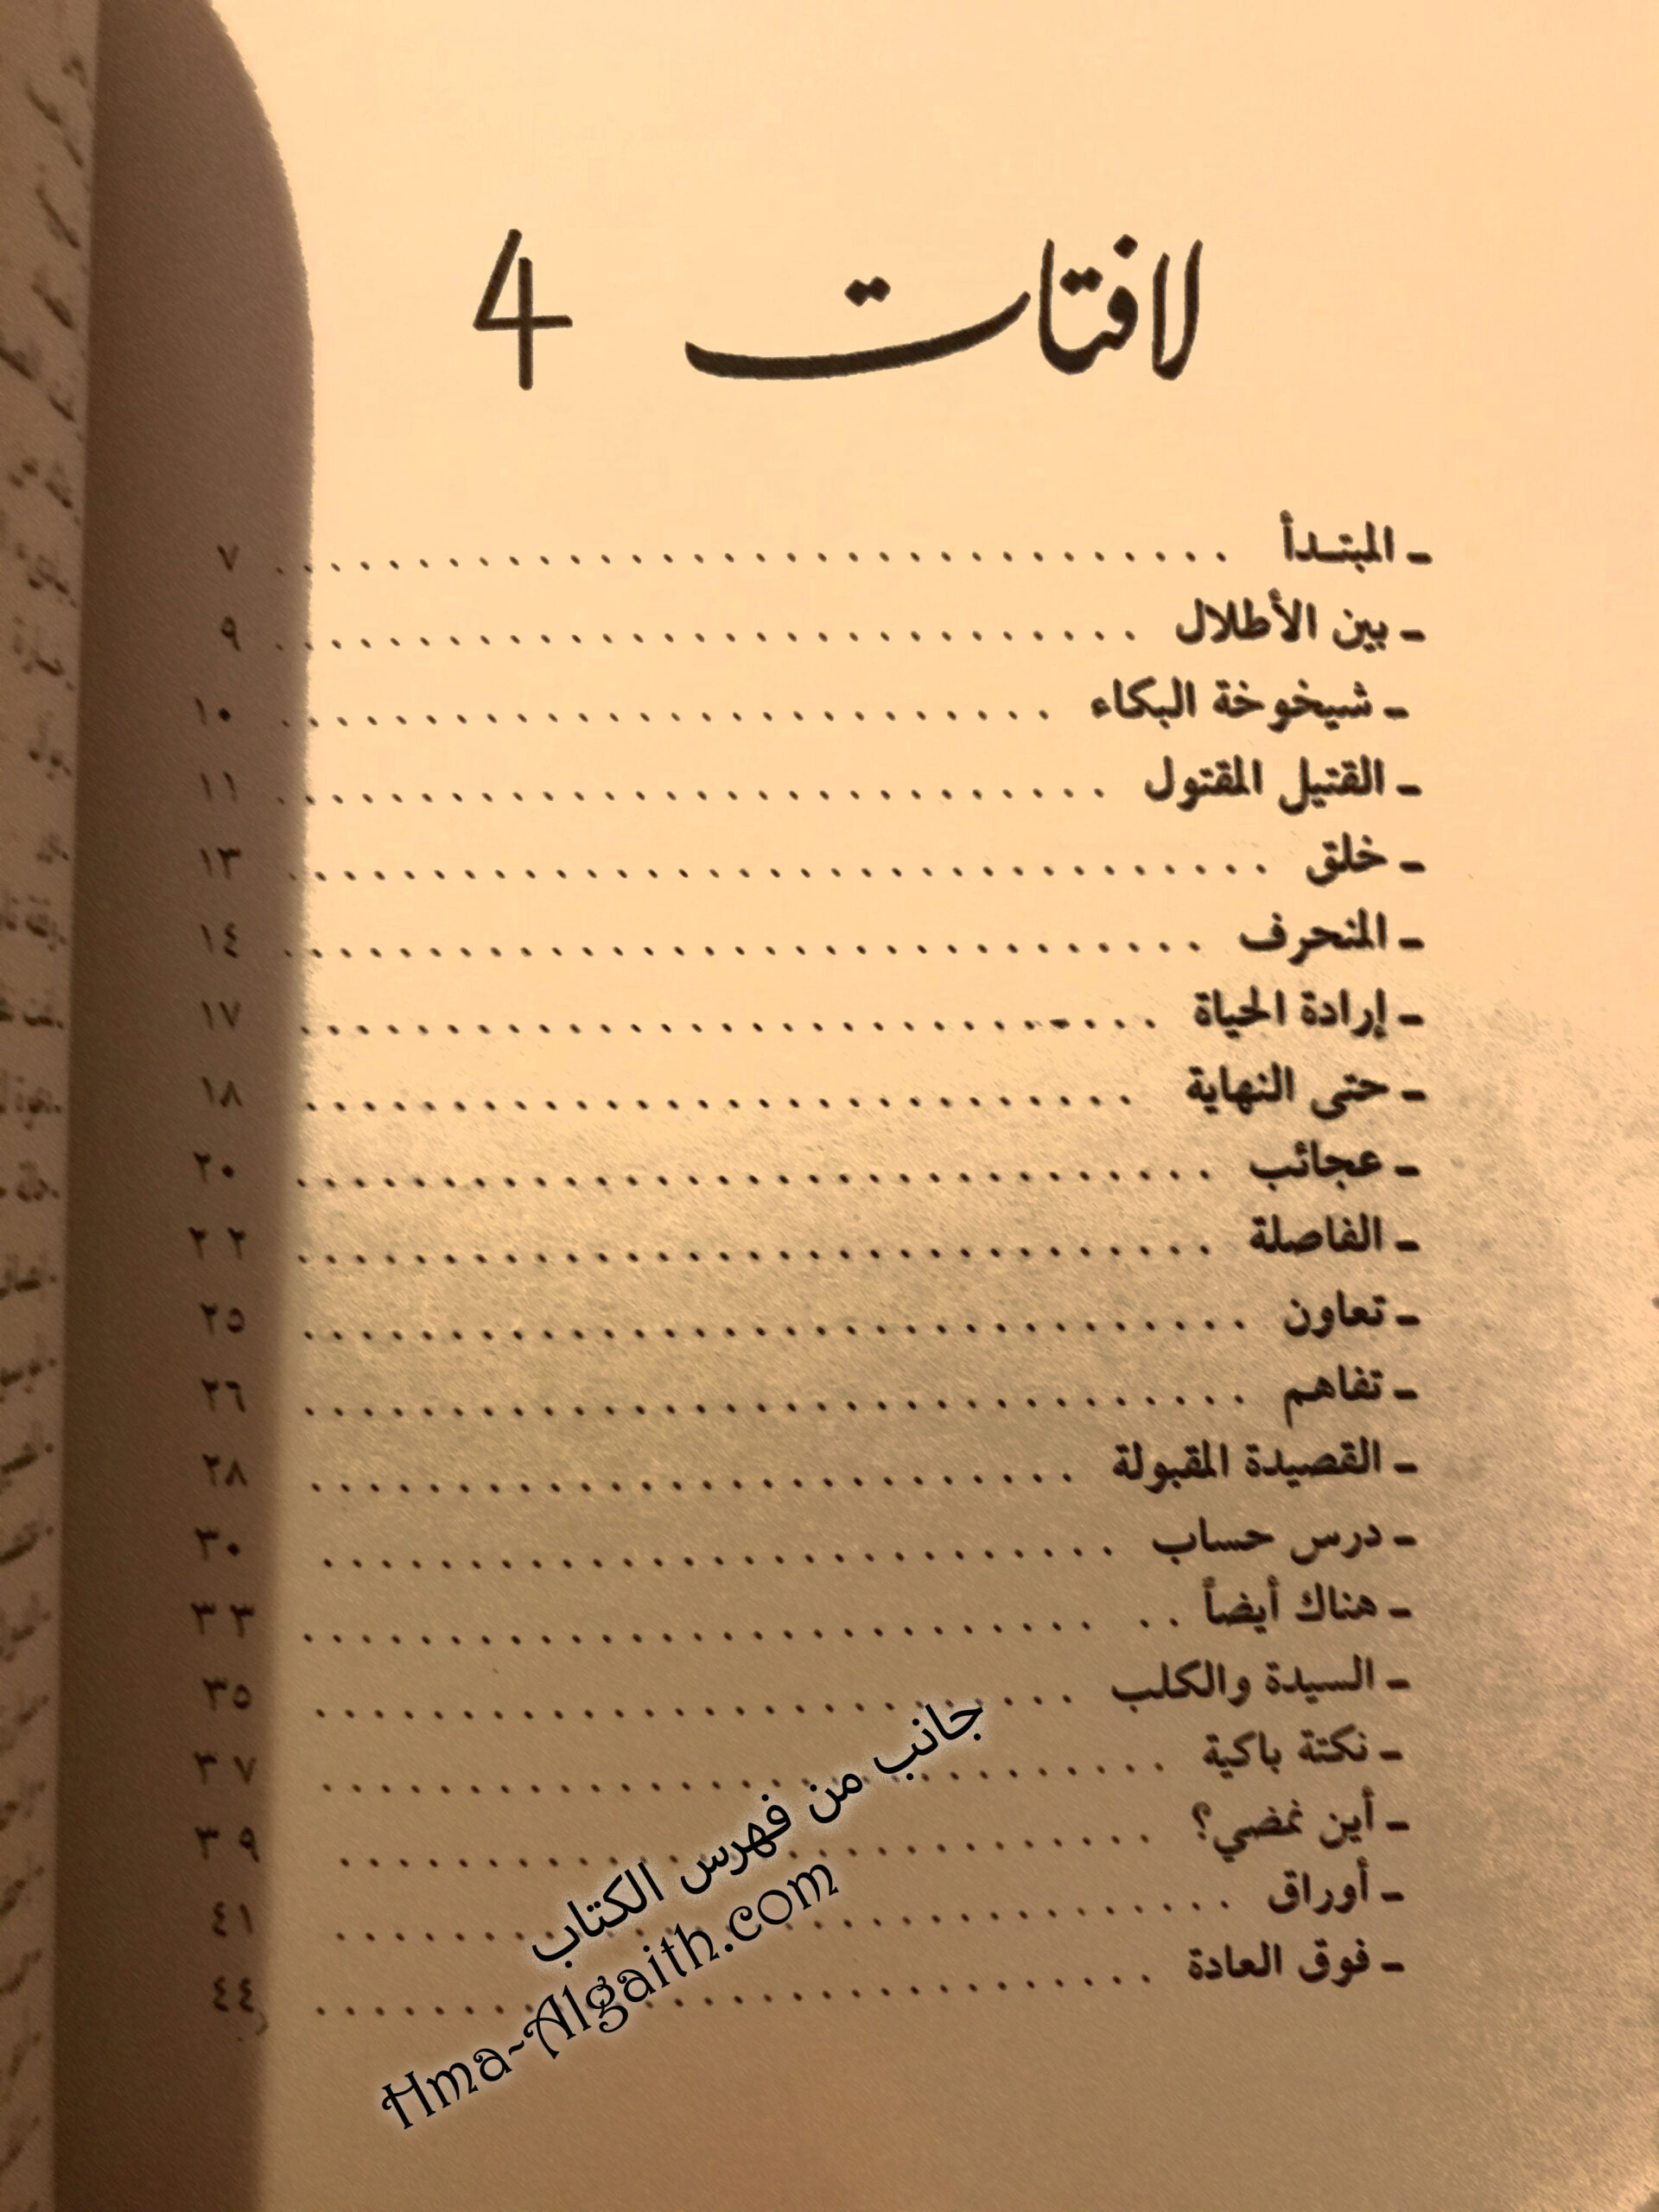 لافتات 4
ـ المبتدأ . . . . . . . . . . . . . . . . . . . . . . . . . . . . . . . . ٧
ـ بين الأطلال . . . . . . . . . . . . . . . . . . . . . . . . . . . . . ٩
ـ شيخوخة البكاء . . . . . . . . . . . . . . . . . . . . . . . . . . ١٠
ـ القتيل المقتول . . . . . . . . . . . . . . . . . . . . . . . . . . . . ١١
ـ خلق . . . . . . . . . . . . . . . . . . . . . . . . . . . . . . . . . ١٣
ـ المنحرف . . . . . . . . . . . . . . . . . . . . . . . . . . . . . . . ١٤
ـ إرادة الحياة . . . . . . . . . . . . . . . . . . . . . . . . . . . . . ١٧
ـ حتى النهاية . . . . . . . . . . . . . . . . . . . . . . . . . . . . ١٨
ـ عجائب . . . . . . . . . . . . . . . . . . . . . . . . . . . . . . . ٢٠
ـ الفاصلة . . . . . . . . . . . . . . . . . . . . . . . . . . . . . . . ٢٢
ـ تعاون . . . . . . . . . . . . . . . . . . . . . . . . . . . . . . . . ٢٥
ـ تفاهم . . . . . . . . . . . . . . . . . . . . . . . . . . . . . . . . ٢٦
ـ القصيدة المقبولة . . . . . . . . . . . . . . . . . . . . . . . . . . ٢٨
ـ درس حساب . . . . . . . . . . . . . . . . . . . . . . . . . . . ٣٠
ـ هناك أيضاً . . . . . . . . . . . . . . . . . . . . . . . . . . . . . ٣٣
ـ السيدة والكلب . . . . . . . . . . . . . . . . . . . . . . . . . . ٣٥
ـ نكتة باكية . . . . . . . . . . . . . . . . . . . . . . . . . . . . . ٣٧
ـ أين نمضي؟ . . . . . . . . . . . . . . . . . . . . . . . . . . . . ٣٩
ـ أوراق . . . . . . . . . . . . . . . . . . . . . . . . . . . . . . . ٤١
ـ فوق العادة . . . . . . . . . . . . . . . . . . . . . . . . . . . . . ٤٤
جانب من فهرس الكتاب
Hma~Algaith.com